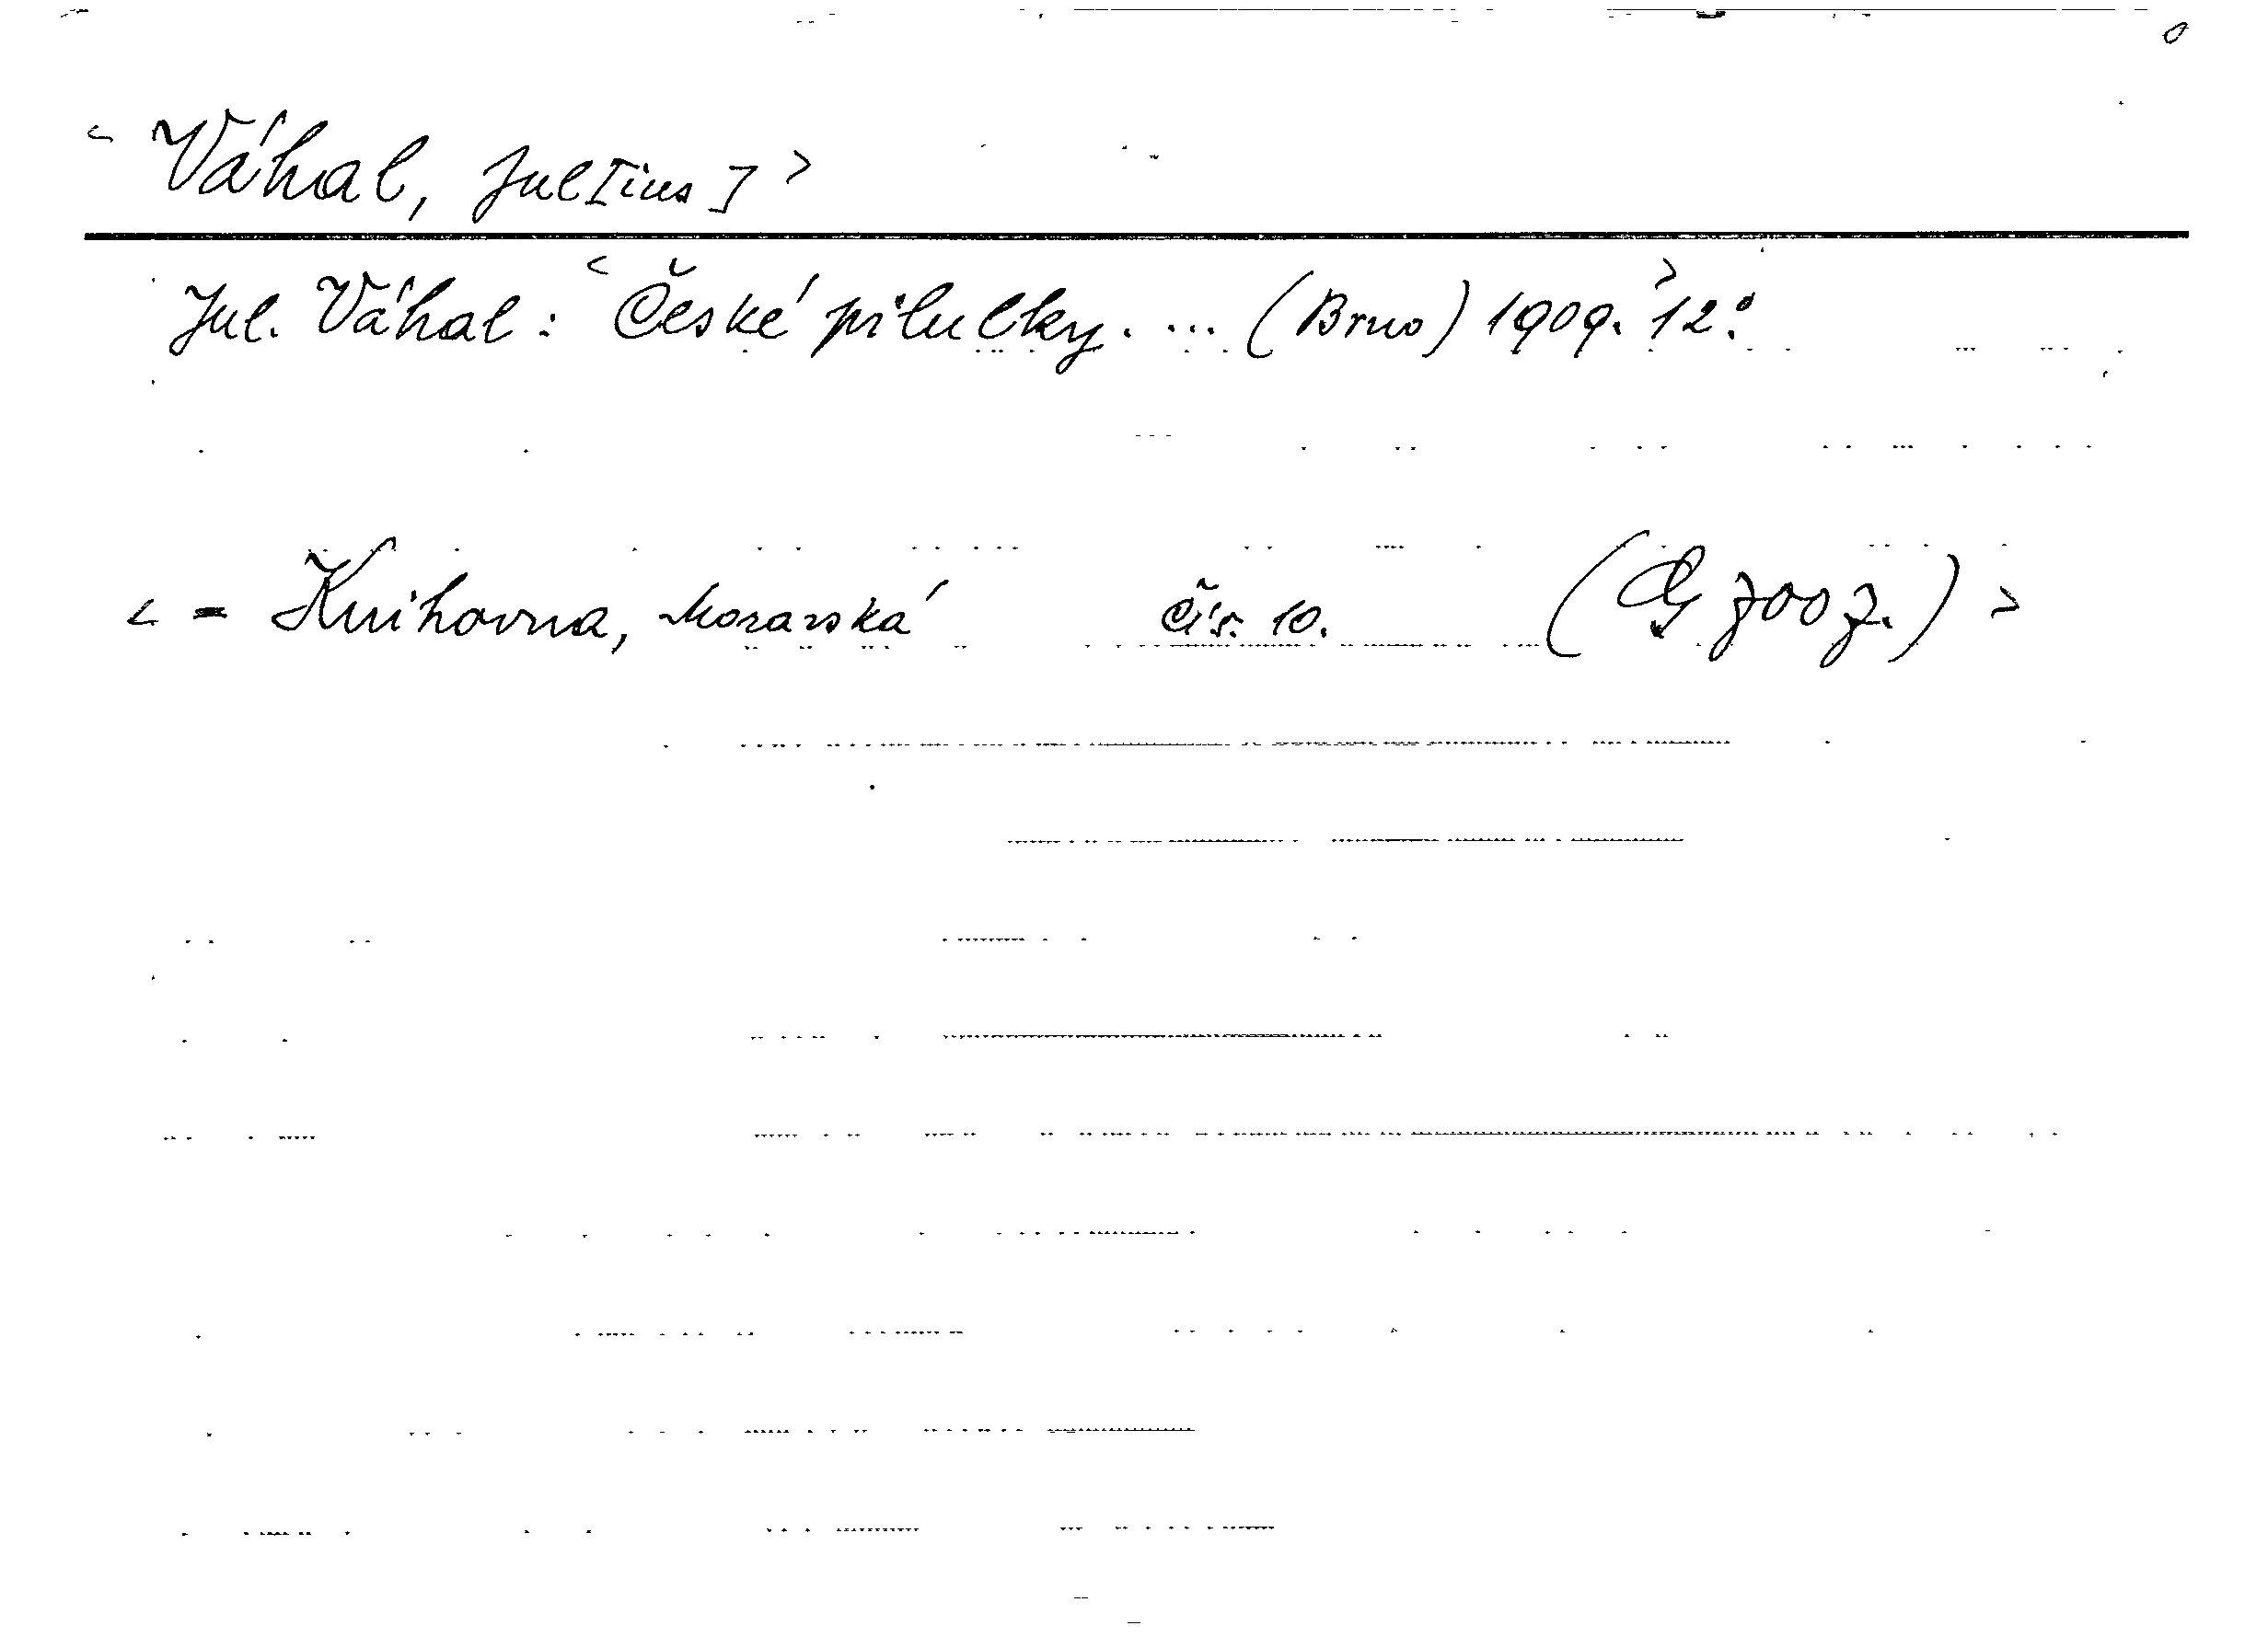 < Váhal, Jul[ius] >
Jul. Váhal: < České pilulky. ... (Brno) 1909. > 12.°
< = Knihovna, Moravská Čís. 10. >